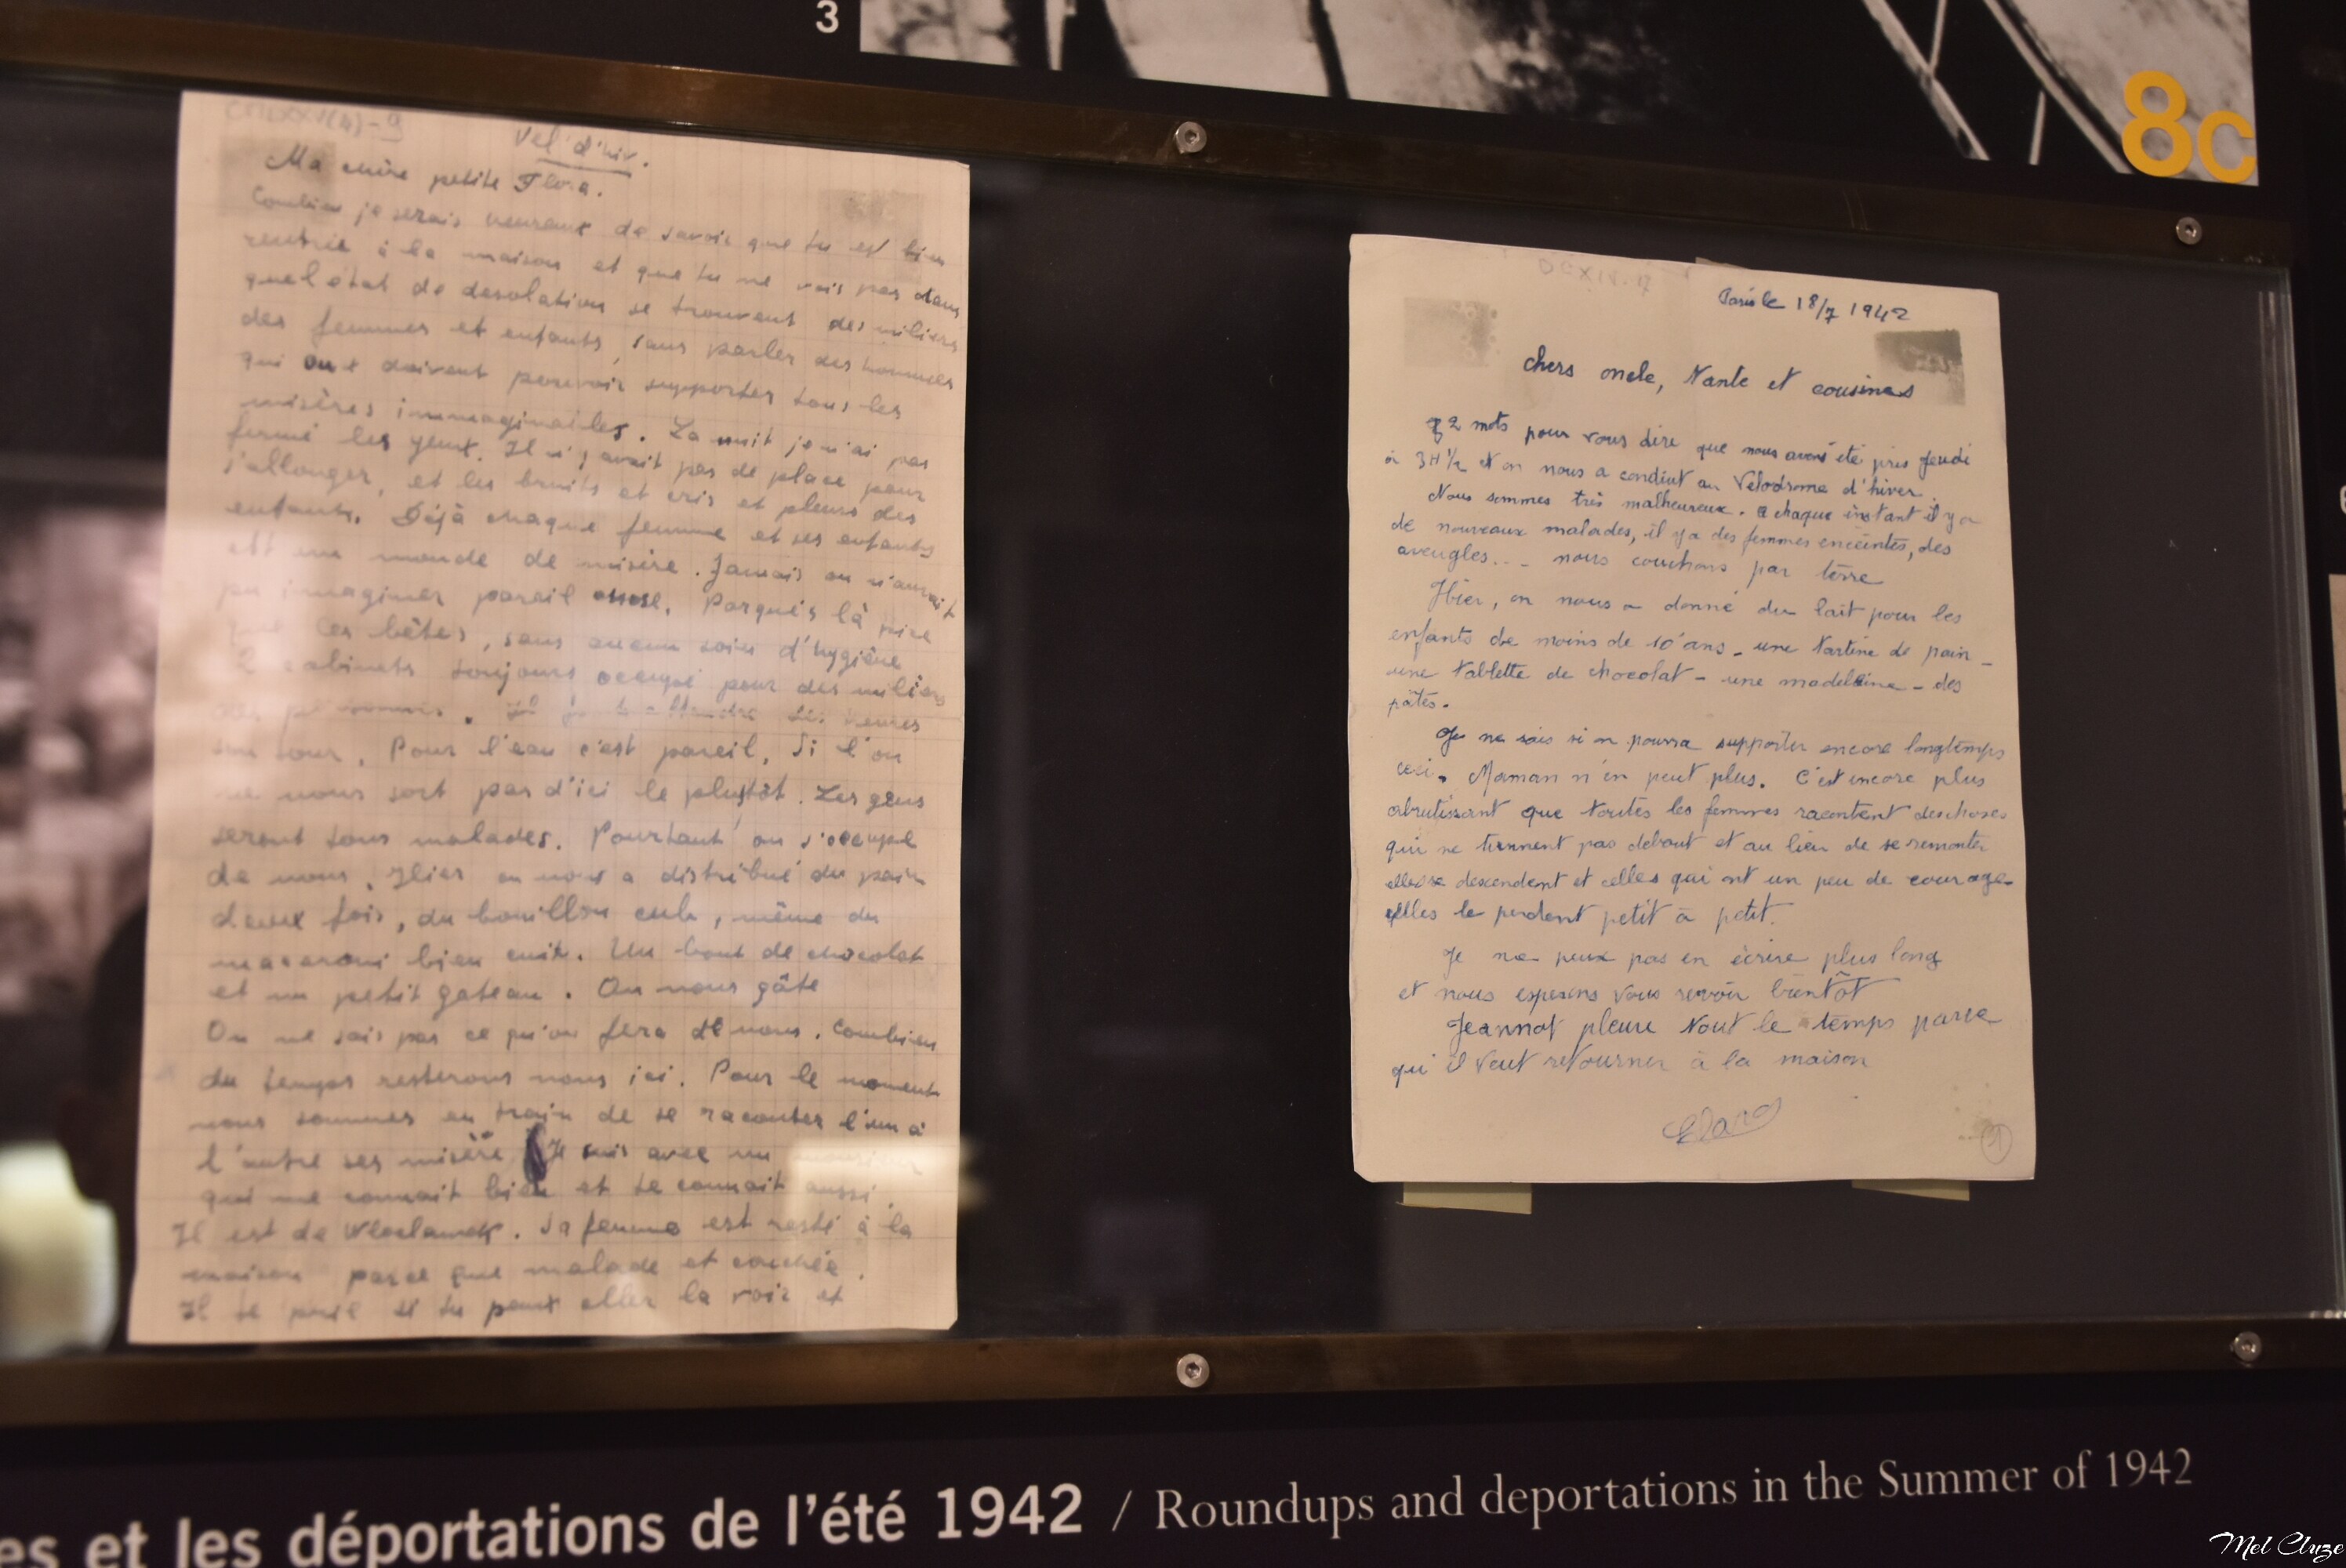 3
8c
Vel d'hiv.
Ma chère petite Flora.
Combien je serais heureux de savoir que tu est bien
rentrée à la maison et que tu ne vois pas dans
quel état de desolation se trouvent des miliers
des femmes et enfants, sans parler des hommes
qui ont doivent pouvoir supporter tous les
misères immaginables. La nuit je n'ai pas
fermé les yeux. Il n'y avait pas de place pour
s'allonger, et les bruits et cris et pleurs des
enfants. Déjà chaque femme et ses enfants
est un monde de misère. Jamais on n'aurait
pu imaginer pareil chose. Parqués là pire
que les bêtes, sans aucun soins d'hygiène
2 cabinets toujours occupé pour des miliers
des personnes. Il faut attendre des heures
son tour. Pour l'eau c'est pareil, Si l'on
ne nous sort pas d'ici le plutôt. Les gens
seront tous malades. Pourtant on s'occupe
de nous, Hier on nous a distribué du pain
deux fois, du bouillon cub, même du
macaroni bien cuit. Un bout de chocolat
et un petit gateau. On nous gâte
On ne sais pas ce qu'on fera de nous. Combien
du temps resterons nous ici. Pour le moment
nous sommes en train de se raconter l'un à
l'autre ses misère Je suis avec un monsieur
qui me connait bien et te connait aussi.
Il est de Wloclawek. Sa femme est resté à la
maison parce que malade et couchée.
Il te prie si tu peux aller la voir et
Paris le 18/7 1942
chers oncle, Tante et cousines
2 mots pour vous dire que nous avons été pris Jeudi
à 3H ½ et on nous a conduit au Vélodrome d'hiver.
Nous sommes très malheureux. a chaque instant il y a
de nouveaux malades, il y a des femmes enceintes, des
aveugles... nous couchons par terre
Hier, on nous a donné du lait pour les
enfants de moins de 10 ans - une tartine de pain -
une tablette de chocolat - une madeleine - des
pâtes.
Je ne sais si on pourra supporter encore longtemps
ceci. Maman n'en peut plus. C'est encore plus
abrutissant que toutes les femmes racontent des choses
qui ne tiennent pas debout et au lieu de se remonter
elles se descendent et celles qui ont un peu de courage
elles le perdent petit à petit.
Je ne peux pas en écrire plus long
et nous esperons vous revoir bientôt
Jeannot pleure tout le temps parce
qu'il veut retourner à la maison
es et les déportations de l'été 1942 / Roundups and deportations in the Summer of 1942
Mel Cluze